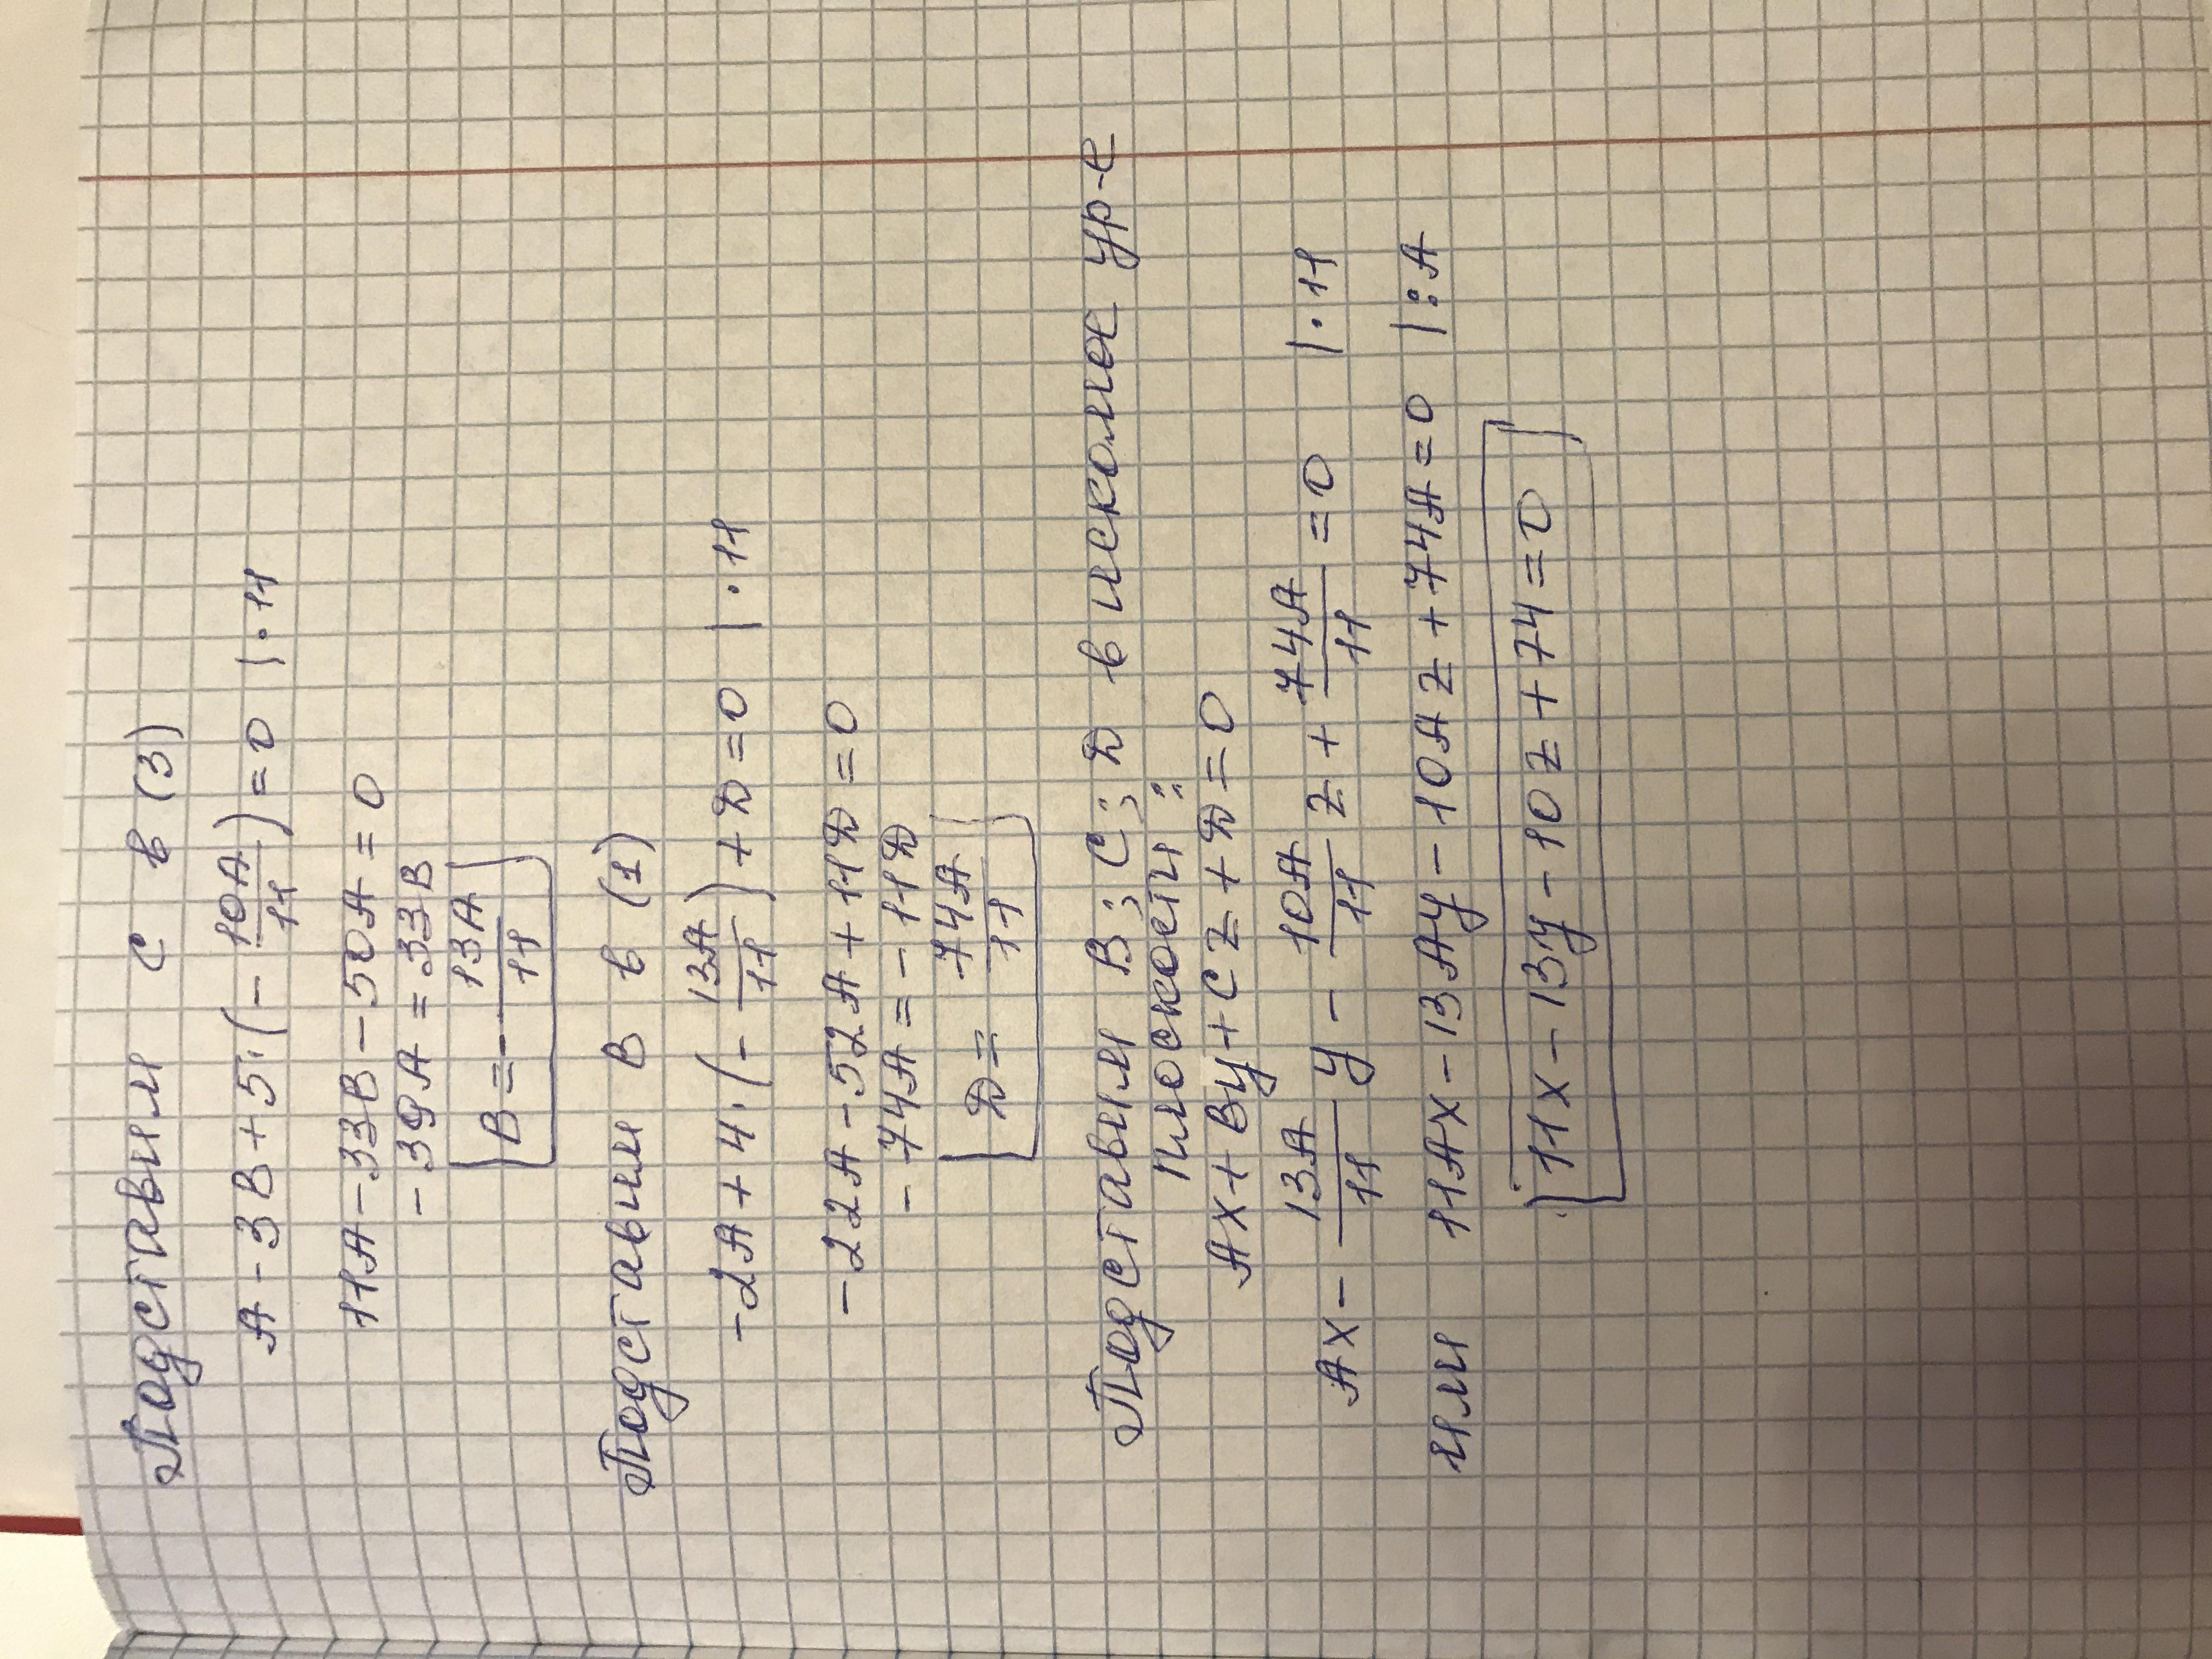 Подставим C в (3)
A - 3B + 5·(- 10A/11) = 0 | · 11
11A - 33B - 50A = 0
- 39A = 33B
B = - 13A/11
Подставим B в (1)
-2A + 4·(- 13A/11) + D = 0 | · 11
-22A - 52A + 11D = 0
- 74A = - 11D
D = 74A/11
Подставим B; C; D в искомое ур-е
плоскости:
Ax + By + Cz + D = 0
Ax - 13A/11 y - 10A/11 z + 74A/11 = 0 | · 11
или 11Ax - 13Ay - 10Az + 74A = 0 | : A
11x - 13y - 10z + 74 = 0